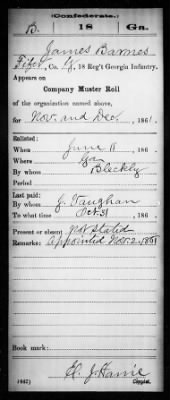 (Confederate.)
B. 18 Ga.
James Barnes
Fifer, Co. K, 18 Reg't Georgia Infantry.
Appears on
Company Muster Roll
of the organization named above,
for Nov. and Dec., 1861.
Enlisted:
When June 11, 186 .
Where Ga
By whom Bleckly
Period
Last paid:
By whom J. Vaughan
To what time Oct. 31, 186 .
Present or absent Not Stated
Remarks: Appointed Nov. 2. 1861
Book mark:
(642)
Copyist.